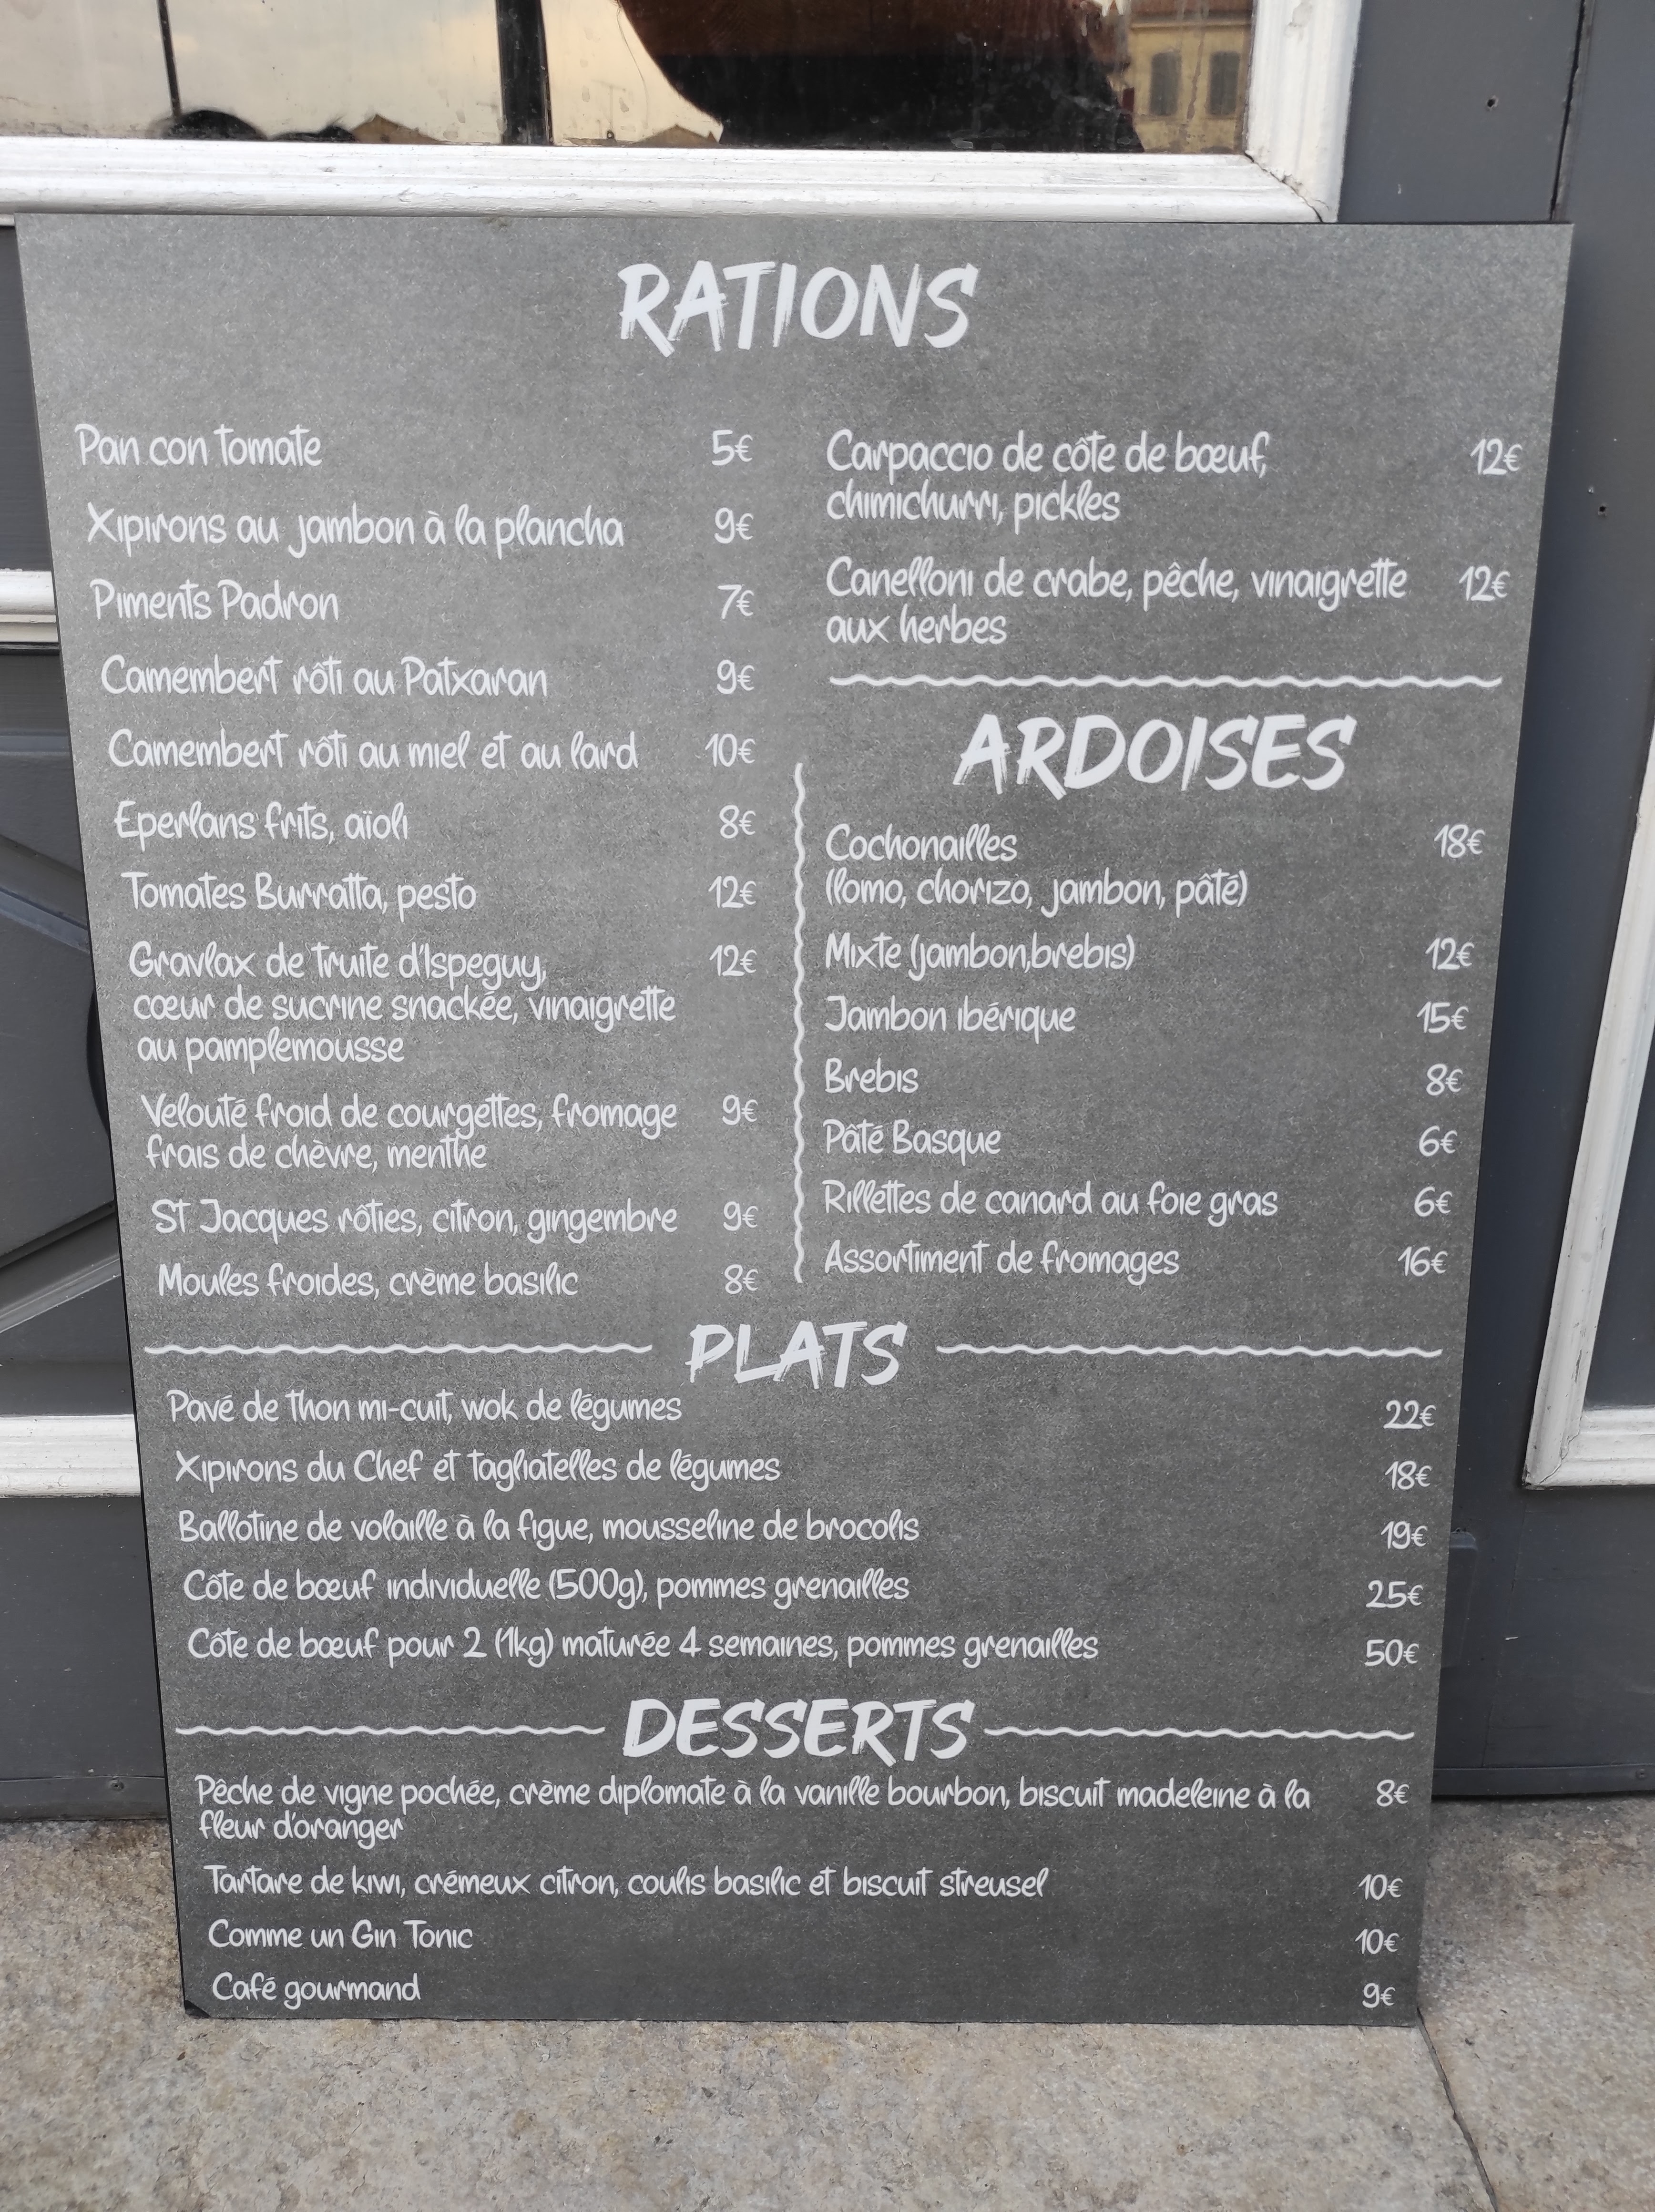 RATIONS
Pan con tomate 5€
Xipirons au jambon à la plancha 9€
Piments Padron 7€
Camembert rôti au Patxaran 9€
Camembert rôti au miel et au lard 10€
Eperlans frits, aïoli 8€
Tomates Burratta, pesto 12€
Gravlax de truite d'Ispeguy, 12€
cœur de sucrine snackée, vinaigrette
au pamplemousse
Velouté froid de courgettes, fromage 9€
frais de chèvre, menthe
St Jacques rôties, citron, gingembre 9€
Moules froides, crème basilic 8€
Carpaccio de côte de bœuf, 12€
chimichurri, pickles
Canelloni de crabe, pêche, vinaigrette 12€
aux herbes
ARDOISES
Cochonailles 18€
(lomo, chorizo, jambon, pâté)
Mixte (jambon,brebis) 12€
Jambon ibérique 15€
Brebis 8€
Pâté Basque 6€
Rillettes de canard au foie gras 6€
Assortiment de fromages 16€
PLATS
Pavé de thon mi-cuit, wok de légumes 22€
Xipirons du Chef et tagliatelles de légumes 18€
Ballotine de volaille à la figue, mousseline de brocolis 19€
Côte de bœuf individuelle (500g), pommes grenailles 25€
Côte de bœuf pour 2 (1kg) maturée 4 semaines, pommes grenailles 50€
DESSERTS
Pêche de vigne pochée, crème diplomate à la vanille bourbon, biscuit madeleine à la 8€
fleur d'oranger
Tartare de kiwi, crémeux citron, coulis basilic et biscuit streusel 10€
Comme un Gin Tonic 10€
Café gourmand 9€